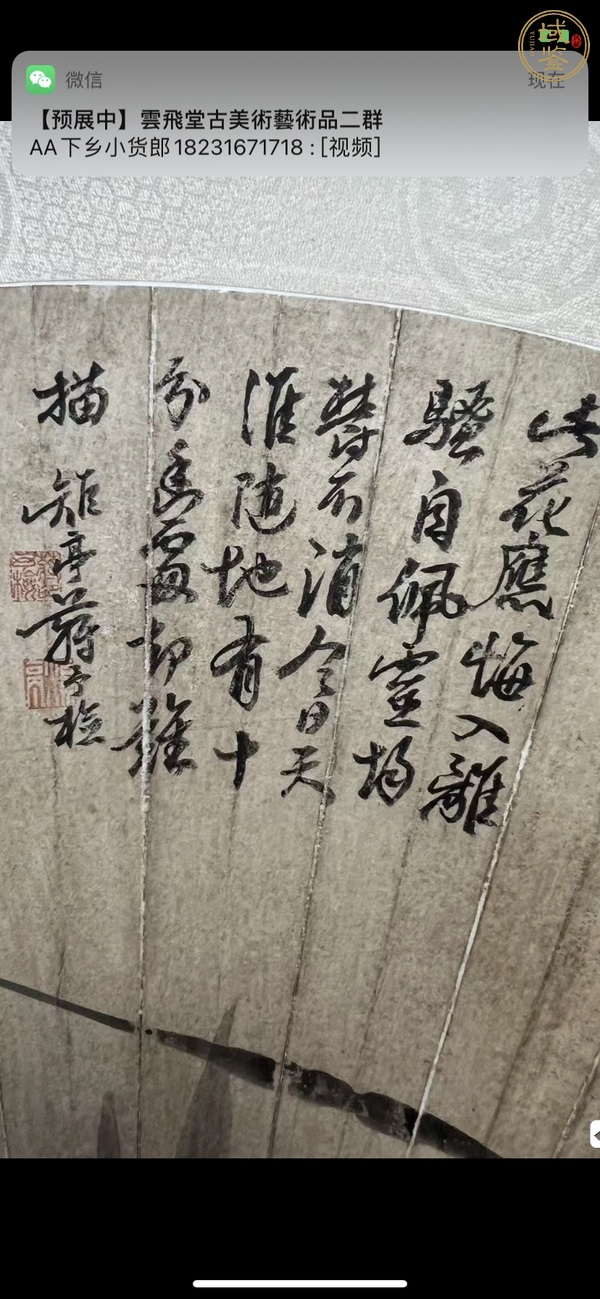 域鑒
微信
现在
【预展中】雲飛堂古美術藝術品二群
AA下乡小货郎18231671718:[视频]
此花應悔入離
騷自佩靈均
不消今日天
涯隨地有十
分處却難
描 矩亭蔣予檢